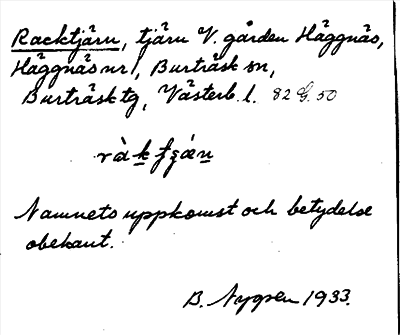 Racktjärn, tjärn V. gården Häggnäs,
Häggnäs nr 1, Burträsk sn,
Burträsk tg, Västerb. l. 82 G. 50
Namnets uppkomst och betydelse
obekant.
B. Nygren 1933.